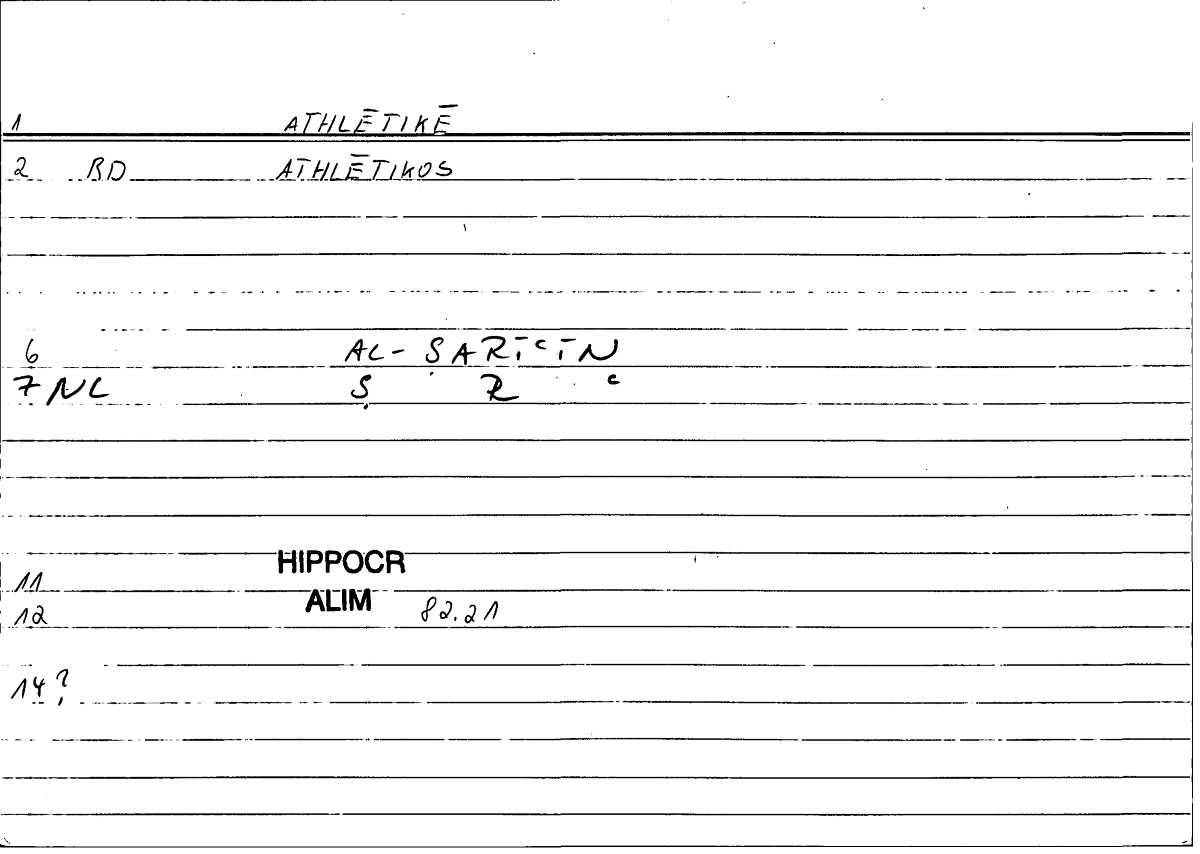 1 ATHLĒTIKĒ
2 RD ATHLĒTIKOS
6 AL-ṢARĪʿĪN
7 NL Ṣ R ʿ
11 HIPPOCR
12 ALIM 82.21
14?